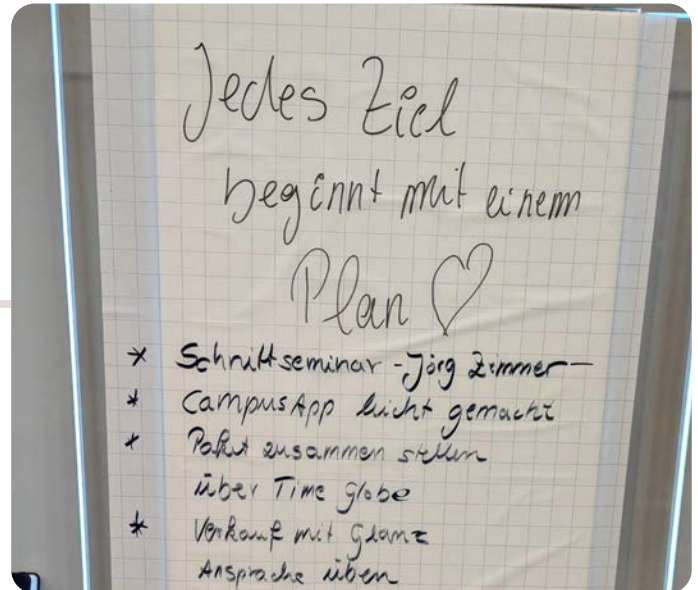 Jedes Ziel
beginnt mit einem
Plan ♡
* Schnittseminar - Jörg Zimmer -
* CampusApp leicht gemacht
* Paket zusammen stellen
über Time Globe
* Verkauf mit Glanz
Ansprache üben